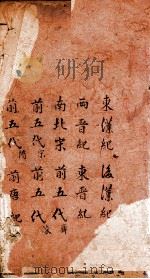 東漢紀 後漢紀
兩晉紀 東晉紀
南北宋 前五代齊
前五代宋 前五代
前五代隋 前唐紀
mtoou.info